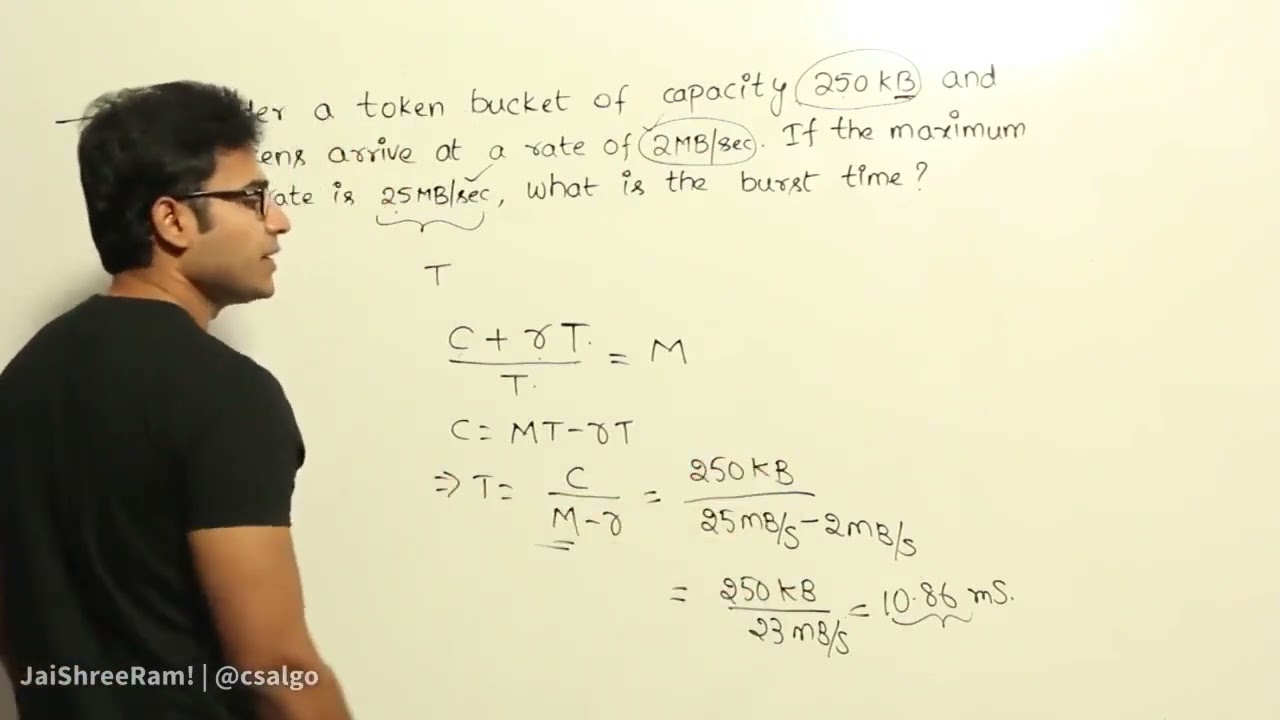 a token bucket of capacity 250 KB and
arrive at a rate of 2MB/sec. If the maximum
is 25MB/sec, what is the burst time?
T
C + rT / T = M
C = MT - rT
⇒ T = C / M - r = 250 KB / 25 MB/s - 2 MB/s
= 250 KB / 23 MB/s = 10.86 ms.
JaiShreeRam! | @csalgo